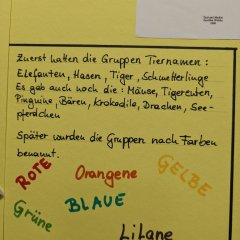 Zuerst hatten die Gruppen Tiernamen:
Elefanten, Hasen, Tiger, Schmetterlinge
Es gab auch noch die: Mäuse, Tigerenten,
Pinguine, Bären, Krokodile, Drachen, See-
pferdchen
Später wurden die Gruppen nach Farben
benannt.
ROTE
Orangene
GELBE
Grüne
BLAUE
LiLane